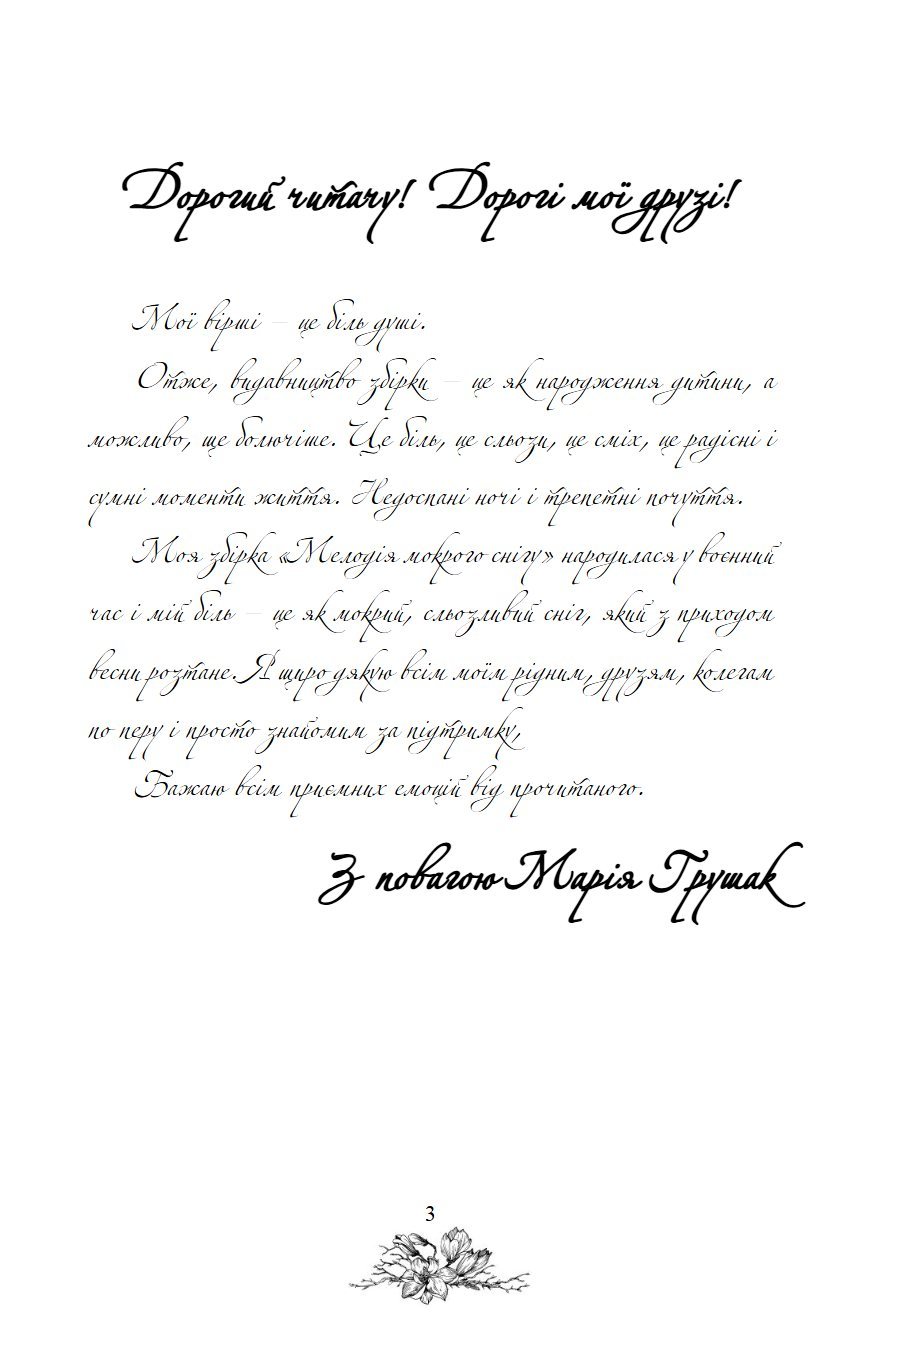 Дорогий читачу! Дорогі мої друзі!
Мої вірші – це біль душі.
Отже, видавництво збірки – це як народження дитини, а
можливо, ще болючіше. Це біль, це сльози, це сміх, це радісні і
сумні моменти життя. Недоспані ночі і трепетні почуття.
Моя збірка «Мелодія мокрого снігу» народилася у воєнний
час і мій біль – це як мокрий, сльозливий сніг, який з приходом
весни розтане. Я щиро дякую всім моїм рідним, друзям, колегам
по перу і просто знайомим за підтримку,
Бажаю всім приємних емоцій від прочитаного.
З повагою Марія Грушак
3